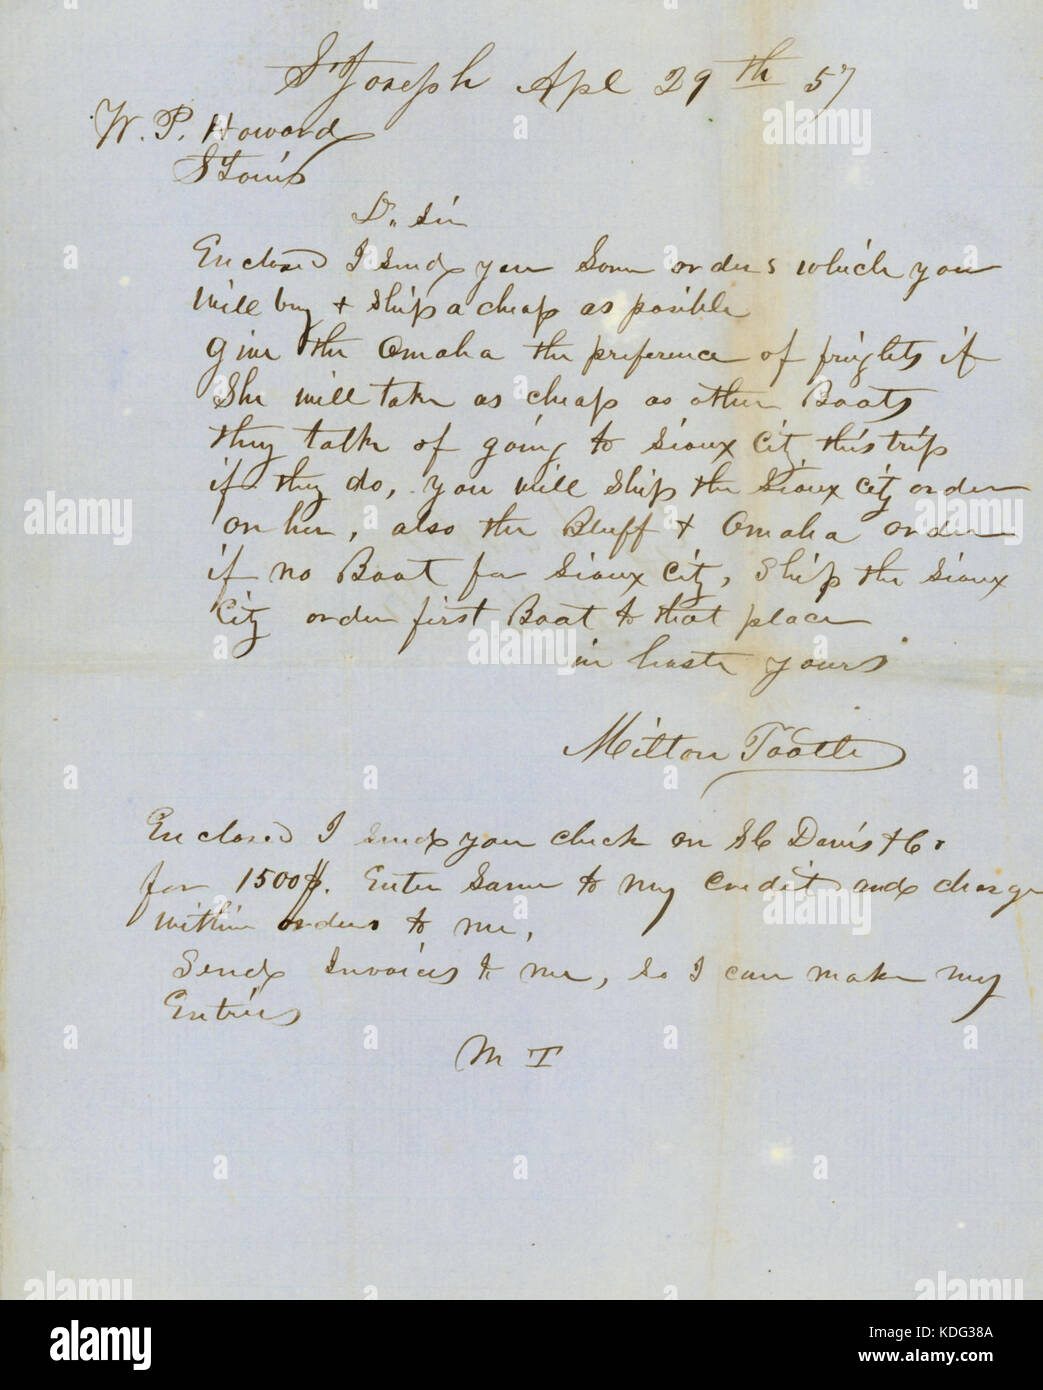 St Joseph Apl 29th 57
W. P. Howard
St Louis
Dr. Sir
Enclosed I send you Some orders which you
will buy & Ship a cheap as posible
give the Omaha the preference of frieghts if
She will take as cheap as other Boats
they talk of going to Sioux City this trip
if they do, you will Ship the Sioux City order
on her, also the Bluff & Omaha order
if no Boat for Sioux City, Ship the Sioux
City order first Boat to that place
in haste yours
Milton Tootle
Enclosed I send you check on Davis & Co
for 1500$. Enter Same to my Credit and charge
within orders to me,
Send Invoices to me, So I can make my
Entries
M T
alamy
Image ID: KDG38A
www.alamy.com